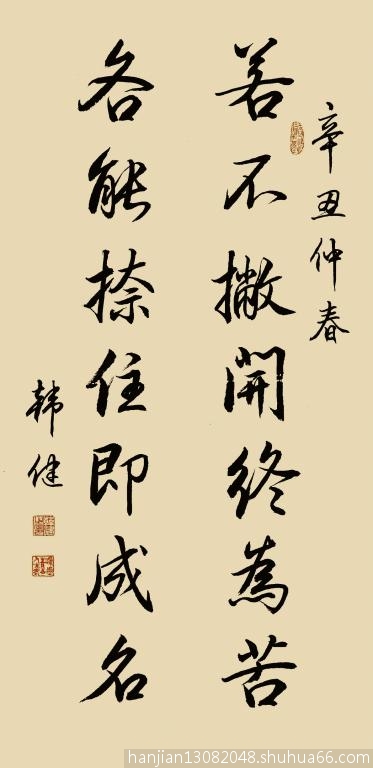 辛丑仲春
若不撇開終為苦
各能捺住即成名
韩健
hanjian13082048.shuhua66.com